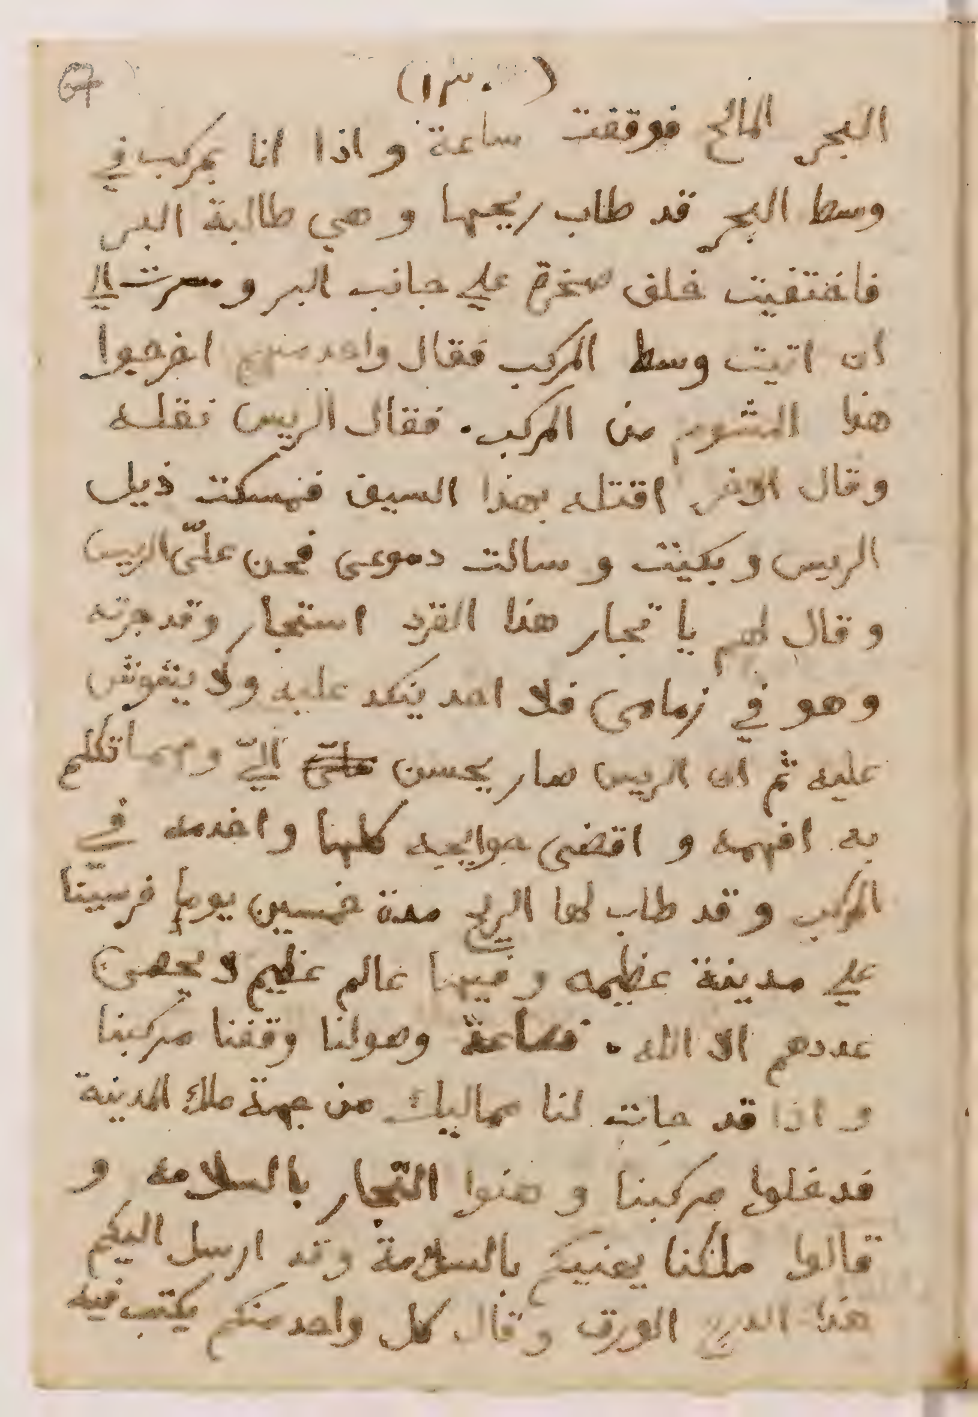 67
(١٣٠)
البحر المالح فوقفت ساعة و اذا انا بمركب في
وسط البحر قد طاب ريحها و هي طالبة البر
فاختفيت خلف صخرة علي جانب البر و سرت الي
ان اتيت وسط المركب فقال واحد منهم اخرجوا
هذا المشوم من المركب. فقال الريس نقتله
وقال الاخر اقتله بهذا السيف فمسكت ذيل
الريس و بكيت و سالت دموعى فحن علىّ الريس
و قال لهم يا تجار هذا القرد استجار وقد جرته
وهو في زمامى فلا احد ينكد عليه ولا يشوش
عليه ثم ان الريس صار يحسن اليّ ومهما تكلم
به افهمه و اقضى حوايجه كلها و اخدمه في
المركب و قد طاب لها الريح مدة خمسين يوما فرسينا
علي مدينة عظيمه و فيها عالم عظيم لا يحصى
عددهم الا الله. فساعة وصولنا وقفنا مركبنا
و اذا قد جات لنا مماليك من جهة ملك المدينة
فدخلوا مركبنا و هنوا التجار بالسلامه و
قالوا ملكنا يهنيكم بالسلامة وقد ارسل اليكم
هذا الدرج الورق و قال كل واحد منكم يكتب فيه